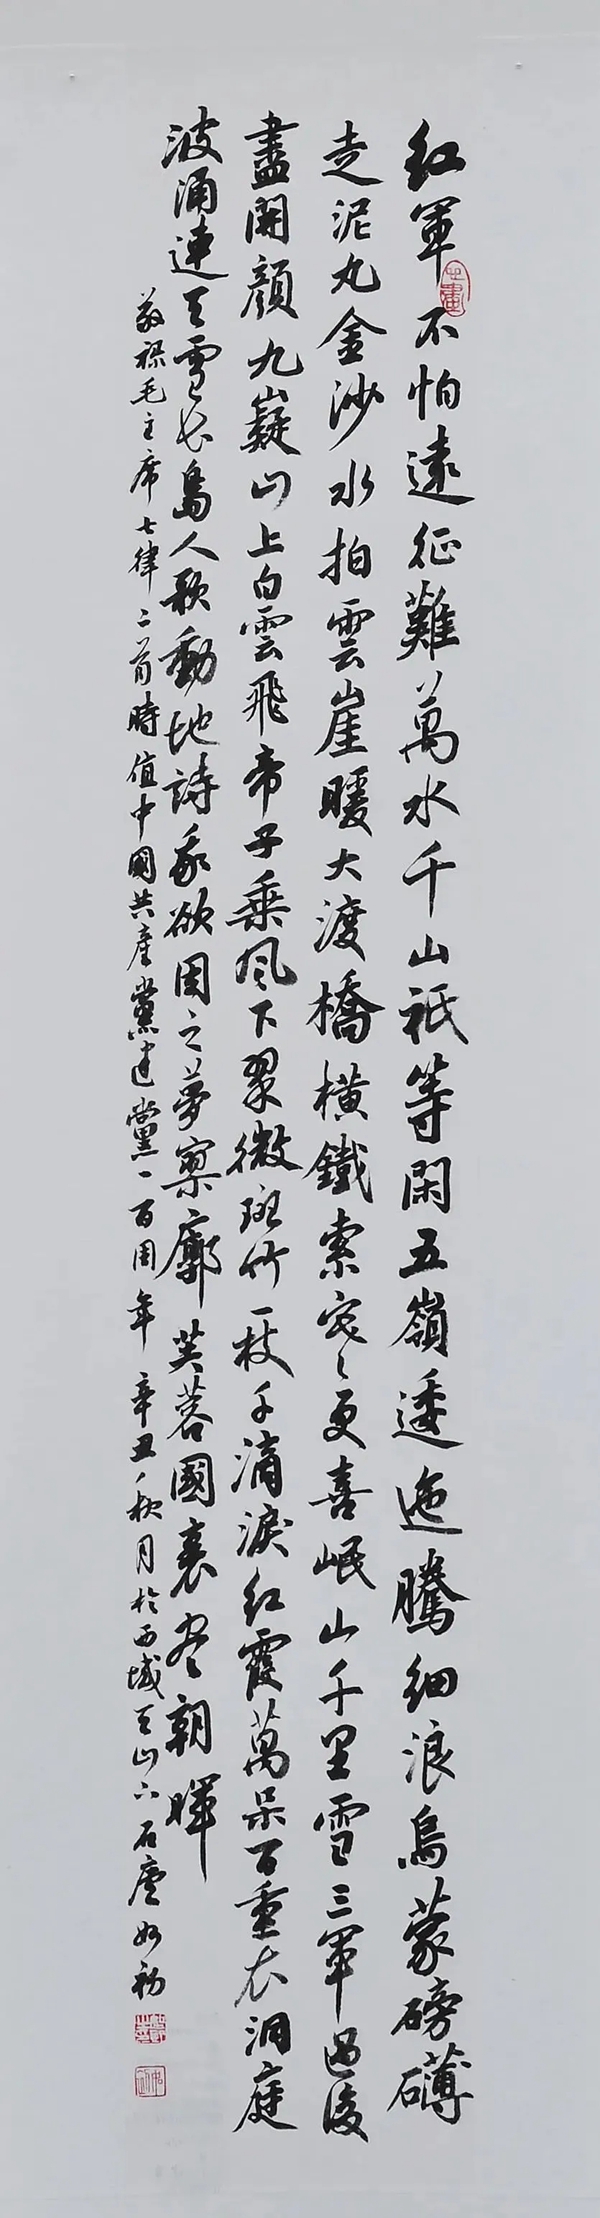 紅軍不怕遠征難萬水千山祇等閑五嶺逶迤騰細浪烏蒙磅礴
走泥丸金沙水拍雲崖暖大渡橋橫鐵索寒更喜岷山千里雪三軍過後
盡開顔九嶷山上白雲飛帝子乘风下翠微斑竹一枝千滴淚红霞萬朵百重衣洞庭
波涌連天雪长島人歌動地詩我欲因之夢寥廓芙蓉國裏尽朝暉
敬録毛主席七律二首時值中國共產黨建黨一百周年 辛丑秋月於西域天山六石廬